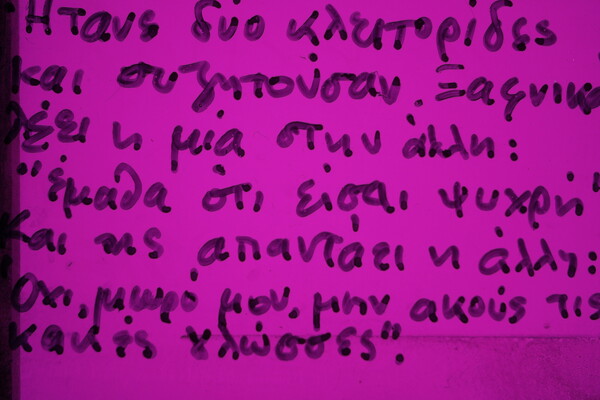 Ήτανε δύο κλειτορίδες
και συζητούσαν. Ξαφνικά
λέει η μία στην άλλη:
"έμαθα ότι είσαι ψυχρή"
και της απαντάει η άλλη:
"Όχι, μωρό μου, μην ακούς τις
κακές γλώσσες".